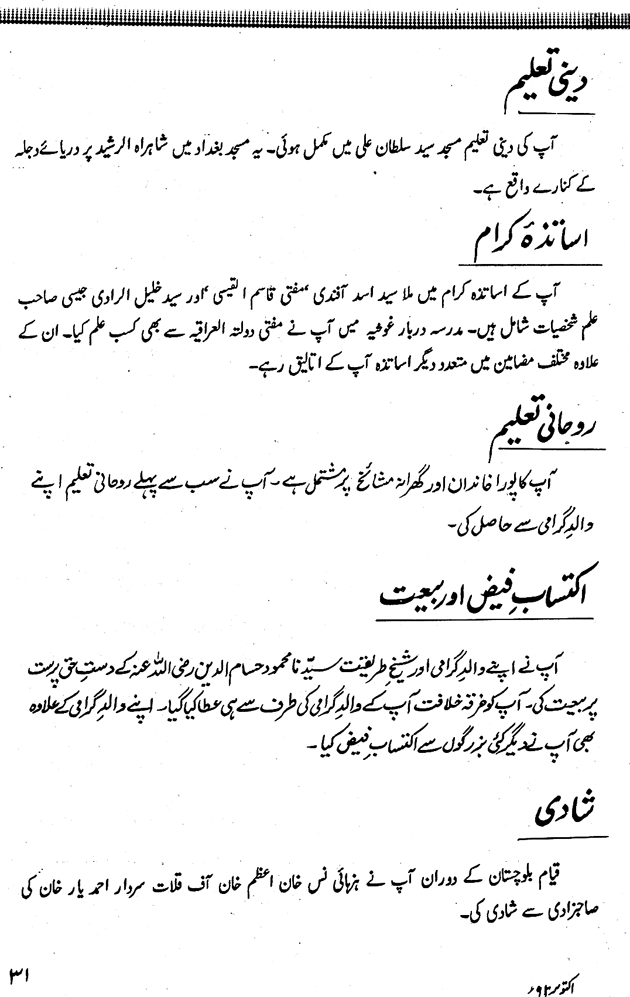 دینی تعلیم
آپ کی دینی تعلیم مسجد سید سلطان علی میں مکمل ہوئی۔ یہ مسجد بغداد میں شاہراہ الرشید پر دریائے دجلہ
کے کنارے واقع ہے۔
اساتذۂ کرام
آپ کے اساتذہ کرام میں ملا سید اسد آفندی ‘مفتی قاسم القیسی ‘اور سید خلیل الرادی جیسی صاحب
علم شخصیات شامل ہیں۔ مدرسہ دربار غوثیہ میں آپ نے مفتی دولتہ العراقیہ سے بھی کسب علم کیا۔ ان کے
علاوہ مختلف مضامین میں متعدد دیگر اساتذہ آپ کے اتالیق رہے۔
روحانی تعلیم
آپ کا پورا خاندان اور گھرانہ مشائخ پر مشتمل ہے۔ آپ نے سب سے پہلے روحانی تعلیم اپنے
والدِ گرامی سے حاصل کی۔
اکتسابِ فیض اور بیعت
آپ نے اپنے والدِ گرامی اور شیخِ طریقت سیّدنا محمود حسام الدین رضی اللہ عنہ کے دستِ حق پرست
پر بیعت کی۔ آپ کو خرقہ خلافت آپ کے والدِ گرامی کی طرف سے ہی عطا کیا گیا۔ اپنے والدِ گرامی کے علاوہ
بھی آپ نے دیگر کئی بزرگوں سے اکتسابِ فیض کیا۔
شادی
قیام بلوچستان کے دوران آپ نے ہزہائی نس خان اعظم خان آف قلات سردار احمد یار خان کی
صاحبزادی سے شادی کی۔
اکتوبر ۹۲ء
۳۱